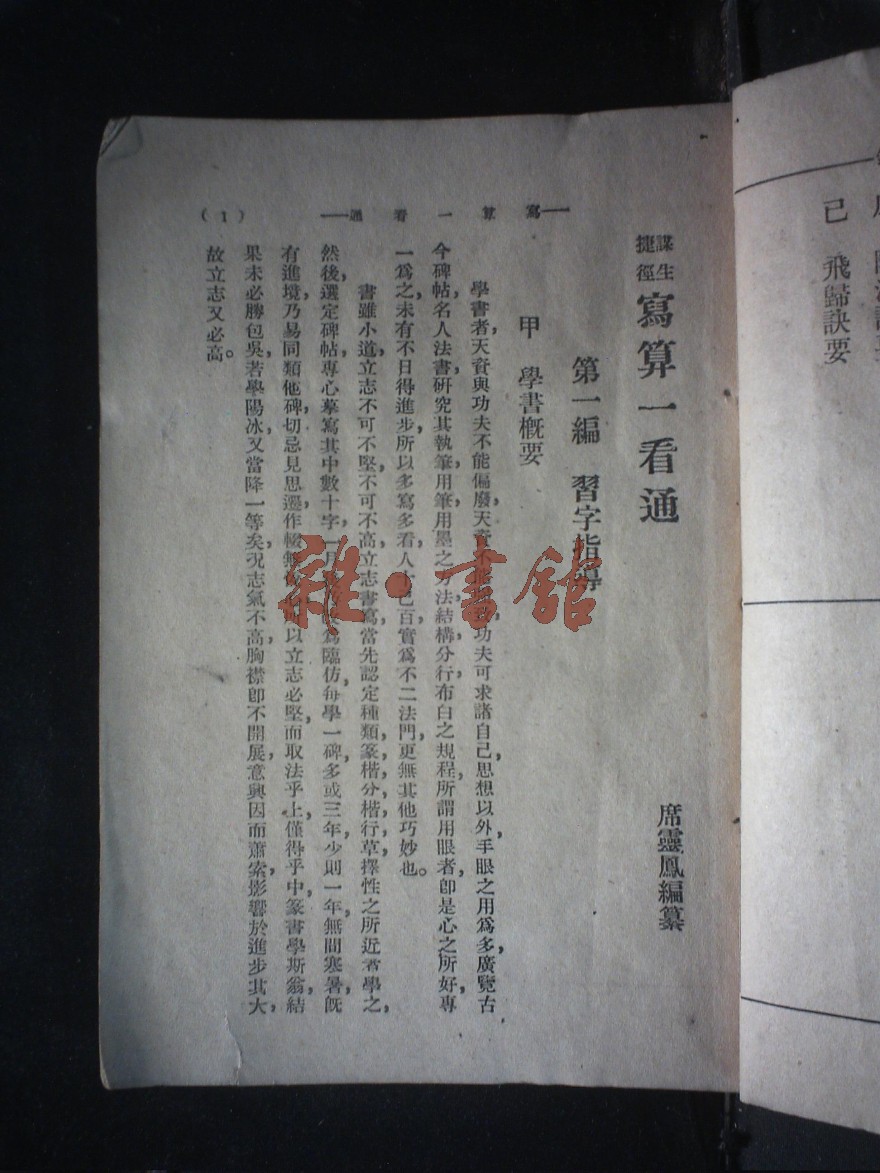 謀生捷徑 寫算一看通
席靈鳳編纂
第一編 習字指導
甲 學書概要
學書者，天資與功夫不能偏廢，天資不能 功夫可求諸自己思想以外，手眼之用爲多，廣覽古
今碑帖，名人法書，研究其執筆，用筆，用墨之方法，結構分行布白之規程，所謂用眼者，卽是心之所好，專
一爲之，未有不日得進步，所以多寫多看，人 己百，實爲不二法門，更無其他巧妙也。
書雖小道，立志不可不堅，不可不高，立志書寫，當先認定種類，篆楷分楷行草，擇性之所近者學之，
然後選定碑帖，專心摹寫其中數十字，一月 爲臨仿，每學一碑，多或三年，少則一年，無間寒暑，旣
有進境，乃易同類他碑，切忌見思遷，作輟無 以立志必堅，而取法乎上，僅得乎中，篆書學斯翁，結
果未必勝包吳，若學陽冰，又當降一等矣，況志氣不高，胸襟卽不開展，意興因而蕭索，影響於進步甚大，
故立志又必高。
寫算一看通
（1）
己 飛歸訣要
雜·書館